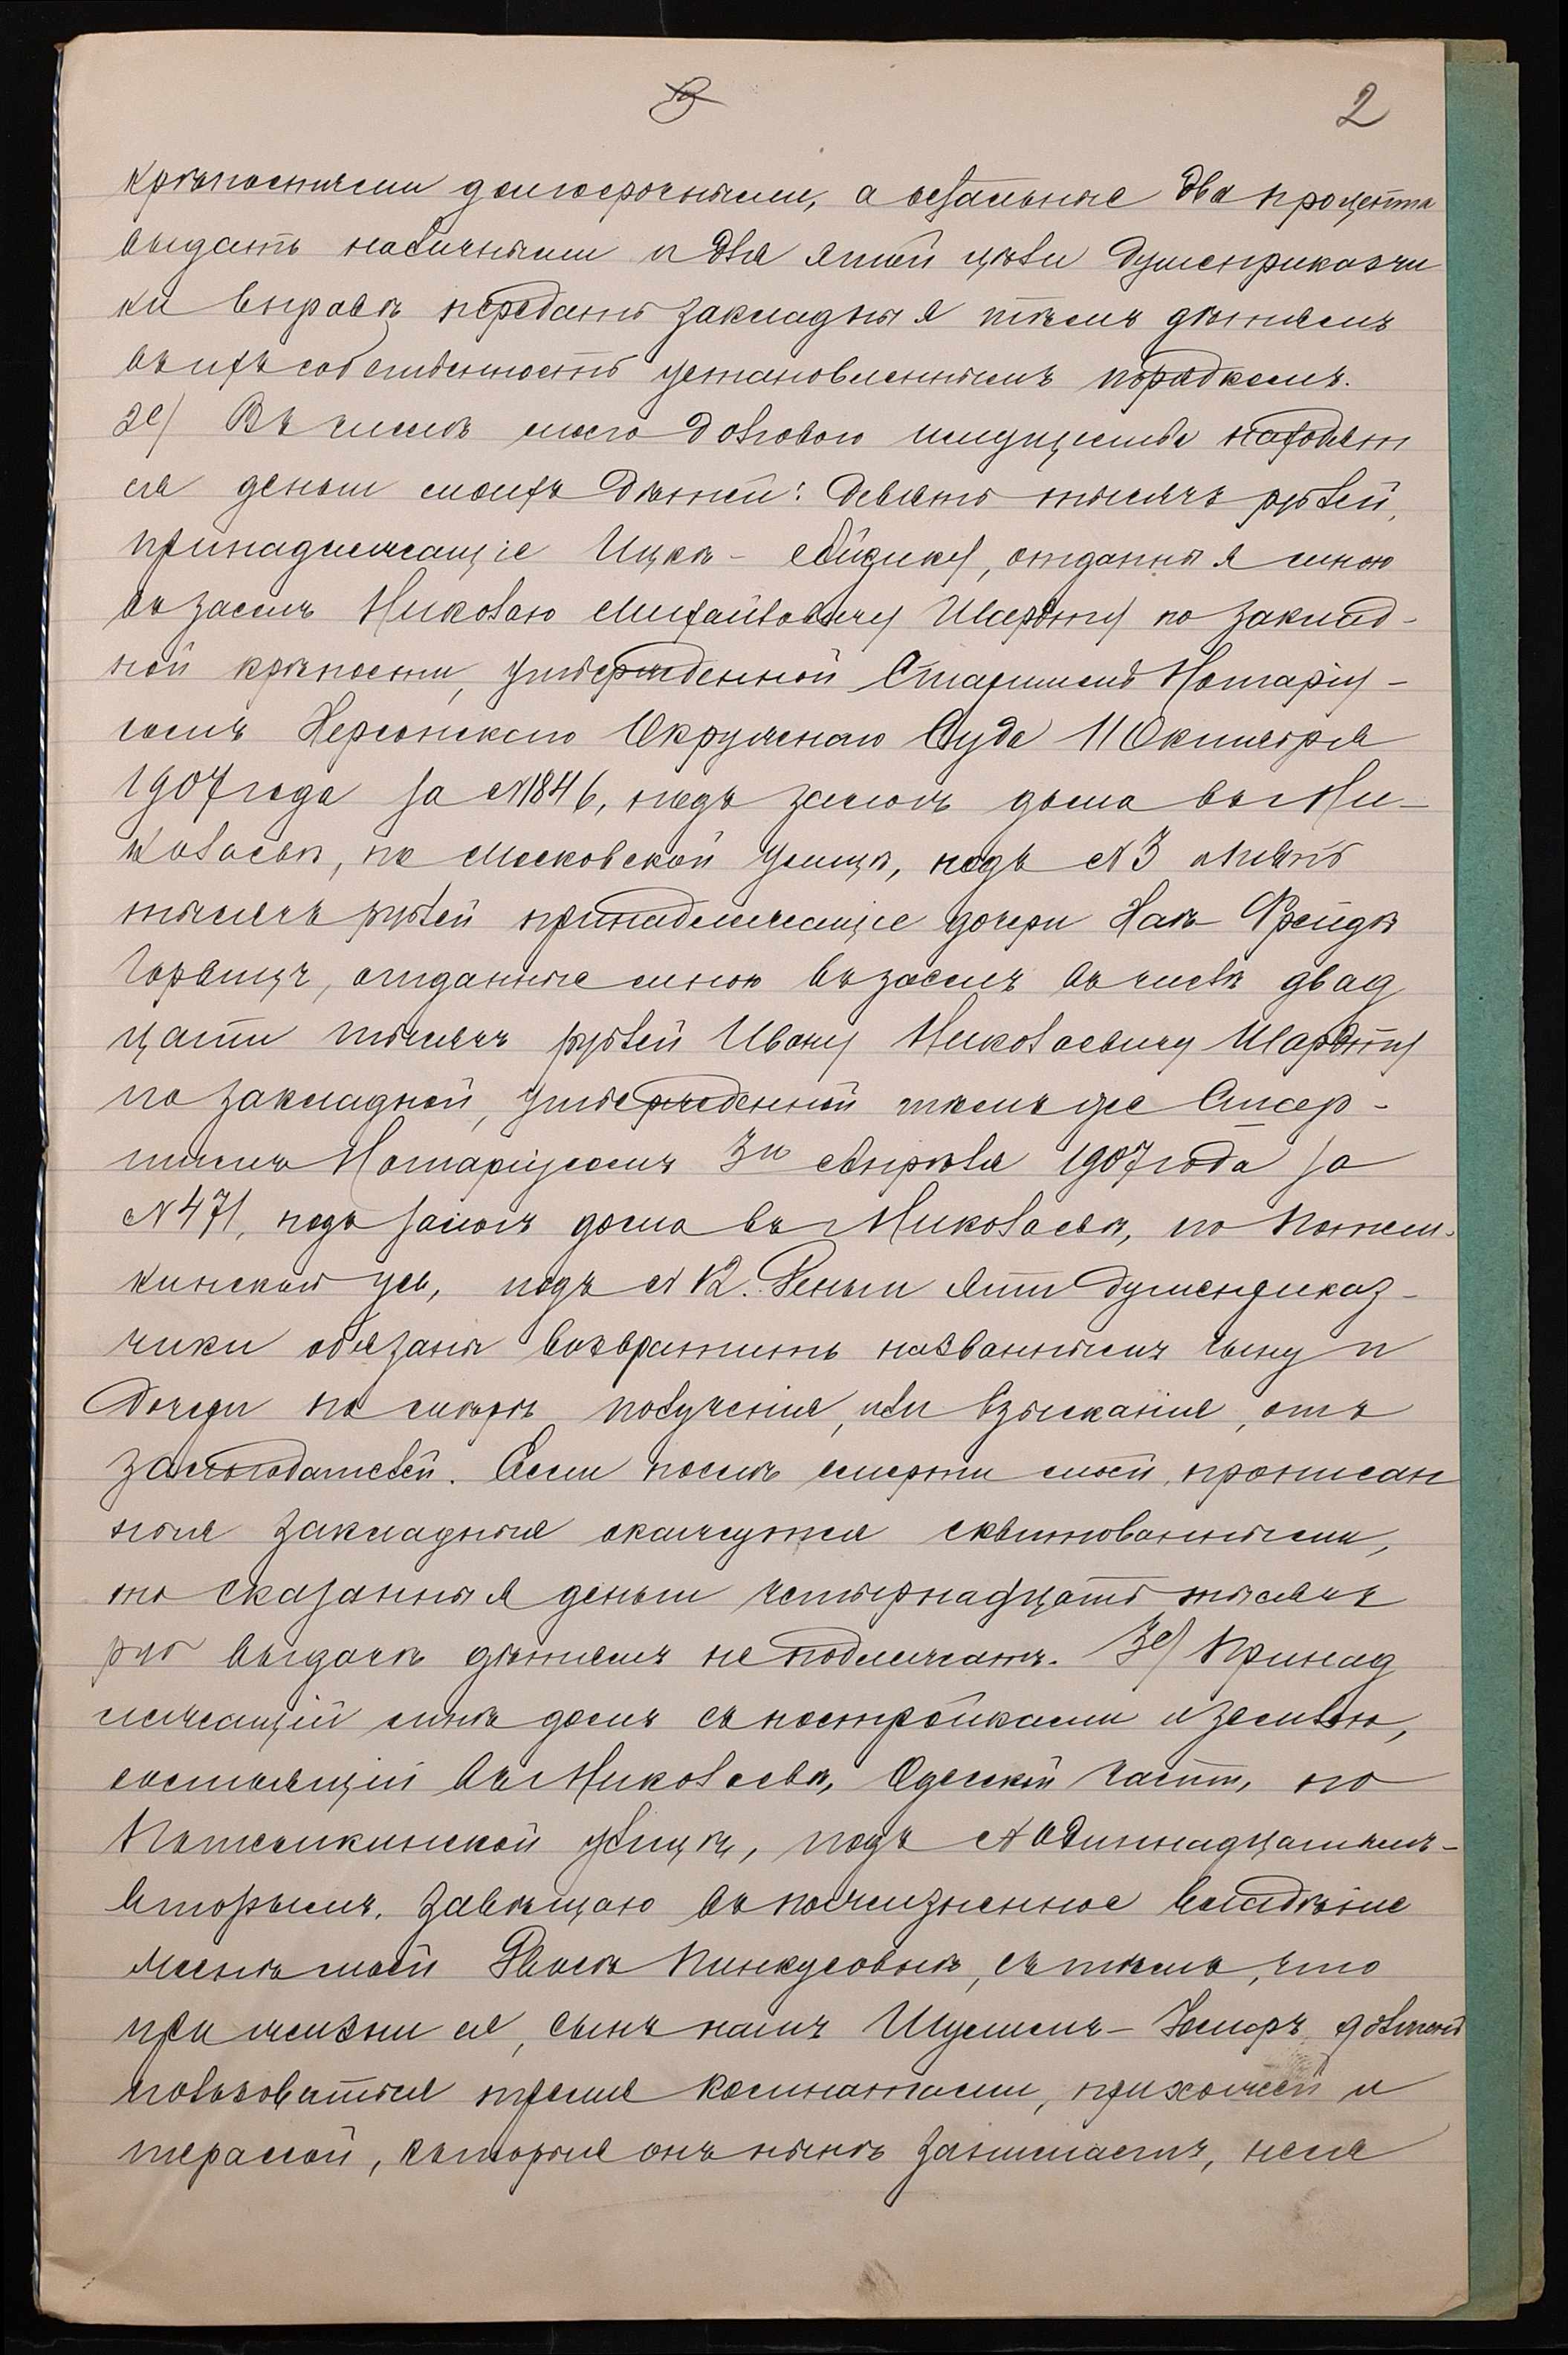 2
крѣпостными долгосрочными, а остальные два процента
выдать наличными и для этой цѣли душеприказчи
ки вправѣ передать закладныя тѣмъ дѣтямъ
въ ихъ собственность установленнымъ порядкомъ.
2е) Въ числѣ моего долгового имущества находят
ся деньги моихъ дѣтей: девять тысячъ рублей,
принадлежащіе Ицкѣ-Айзику, отданныя мною
въ заемъ Николаю Михайловичу Шардту по заклад-
ной крѣпости, утвержденной Старшимъ Нотаріу-
сомъ Херсонскаго Окружнаго Суда 11 Октября
1907 года за №1846, подъ залогъ дома въ Ни-
колаевѣ, по Московской улицѣ, подъ №3 и пять
тысячъ рублей принадлежащіе дочери Хаѣ-Фрейдѣ
Горвицъ, отданные мною въ заемъ въ числѣ двад
цати тысячъ рублей Ивану Николаевичу Шардту
по закладной, утвержденной тѣмъ же Стар-
шимъ Нотаріусомъ 3го Апрѣля 1907 года за
№471, подъ залогъ дома въ Николаевѣ, по Потем-
кинской ул, подъ №12. Деньги эти душеприказ-
чики обязаны возвратить названнымъ сыну и
дочери по мѣрѣ полученія, или взысканія, отъ
залогодателей. Если послѣ смерти моей, прописан
ныя закладныя окажутся сквитованными,
то сказанныя деньги четырнадцать тысячъ
руб выдачѣ дѣтямъ не подлежатъ. 3е) Принад
лежащій мнѣ домъ съ постройками и землею,
состоящій въ Николаевѣ, Одесской части, по
Потемкинской улицѣ, подъ № одиннадцатымъ-
вторымъ, завѣщаю въ пожизненное владѣніе
женѣ моей Пинкусовнѣ, съ тѣмъ, что
при жизни ея, сынъ нашъ Шулемъ- долженъ
пользоваться тремя комнатами, прихожей и
терасой, которыя онъ нынѣ занимаетъ, не